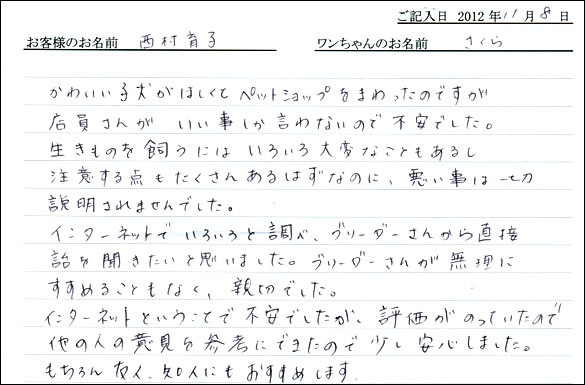 ご記入日 2012年11月8日
お客様のお名前 西村育子 ワンちゃんのお名前 さくら
かわいい子犬がほしくてペットショップをまわったのですが
店員さんが いい事しか言わないので 不安でした。
生きものを飼うには いろいろ大変なこともあるし
注意する点もたくさんあるはずなのに、悪い事は一切
説明されませんでした。
インターネットで いろいろと調べ、ブリーダーさんから直接
話を聞きたいと思いました。ブリーダーさんが 無理に
すすめることもなく、親切でした。
インターネットということで 不安でしたが、評価がのっていたので
他の人の意見を参考にできたので少し安心しました。
もちろん 友人、知人にも おすすめします。